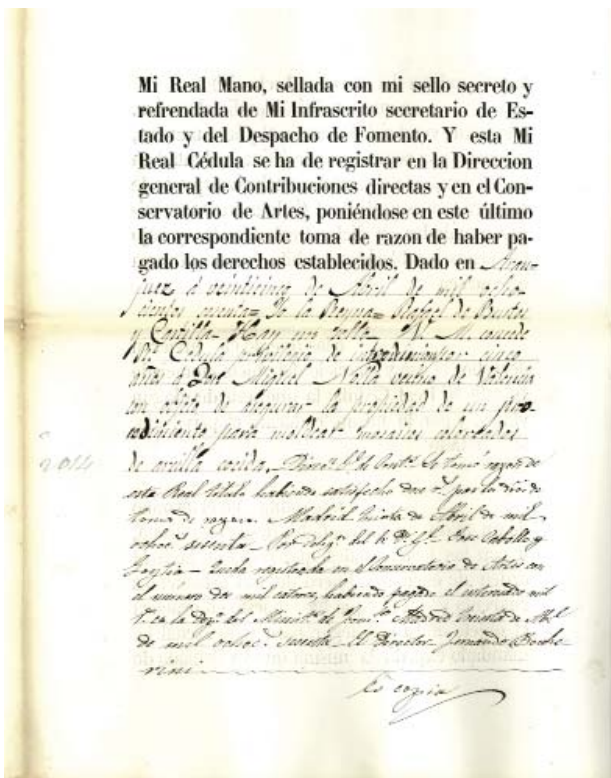 Mi Real Mano, sellada con mi sello secreto y
refrendada de Mi Infrascrito secretario de Es-
tado y del Despacho de Fomento. Y esta Mi
Real Cédula se ha de registrar en la Direccion
general de Contribuciones directas y en el Con-
servatorio de Artes, poniéndose en este último
la correspondiente toma de razon de haber pa-
gado los derechos establecidos. Dado en Aran-
juez á veinticinco de Abril de mil ocho-
cientos sesenta = Yo la Reyna = Rafael de Bustos
y Castilla = Hay un sello = V. M. concede
Rl. Cedula privilegio de introduccion por cinco
años á José Miguel Nolla vecino de Valencia
con objeto de asegurar la propiedad de un pro-
cedimiento para moldear mosaicos colorados
de arcilla cocida. Direccn. Gl. de Contrs. Se tomó razon de
esta Real Cédula habiendo satisfecho por los dros. de
toma de razon. Madrid treinta de Abril de mil
ochocs. sesenta = Por del Sr. José Cebollo y
= Queda registrada en el Conservatorio de Artes con
el número dos mil catorce, habiendo pagado el interesado mil
rs. en la del Ministo. de Fomto. Madrid treinta de Abl.
de mil ochocs. sesenta = El Director = Fernando Boccherini
2.014
Es copia